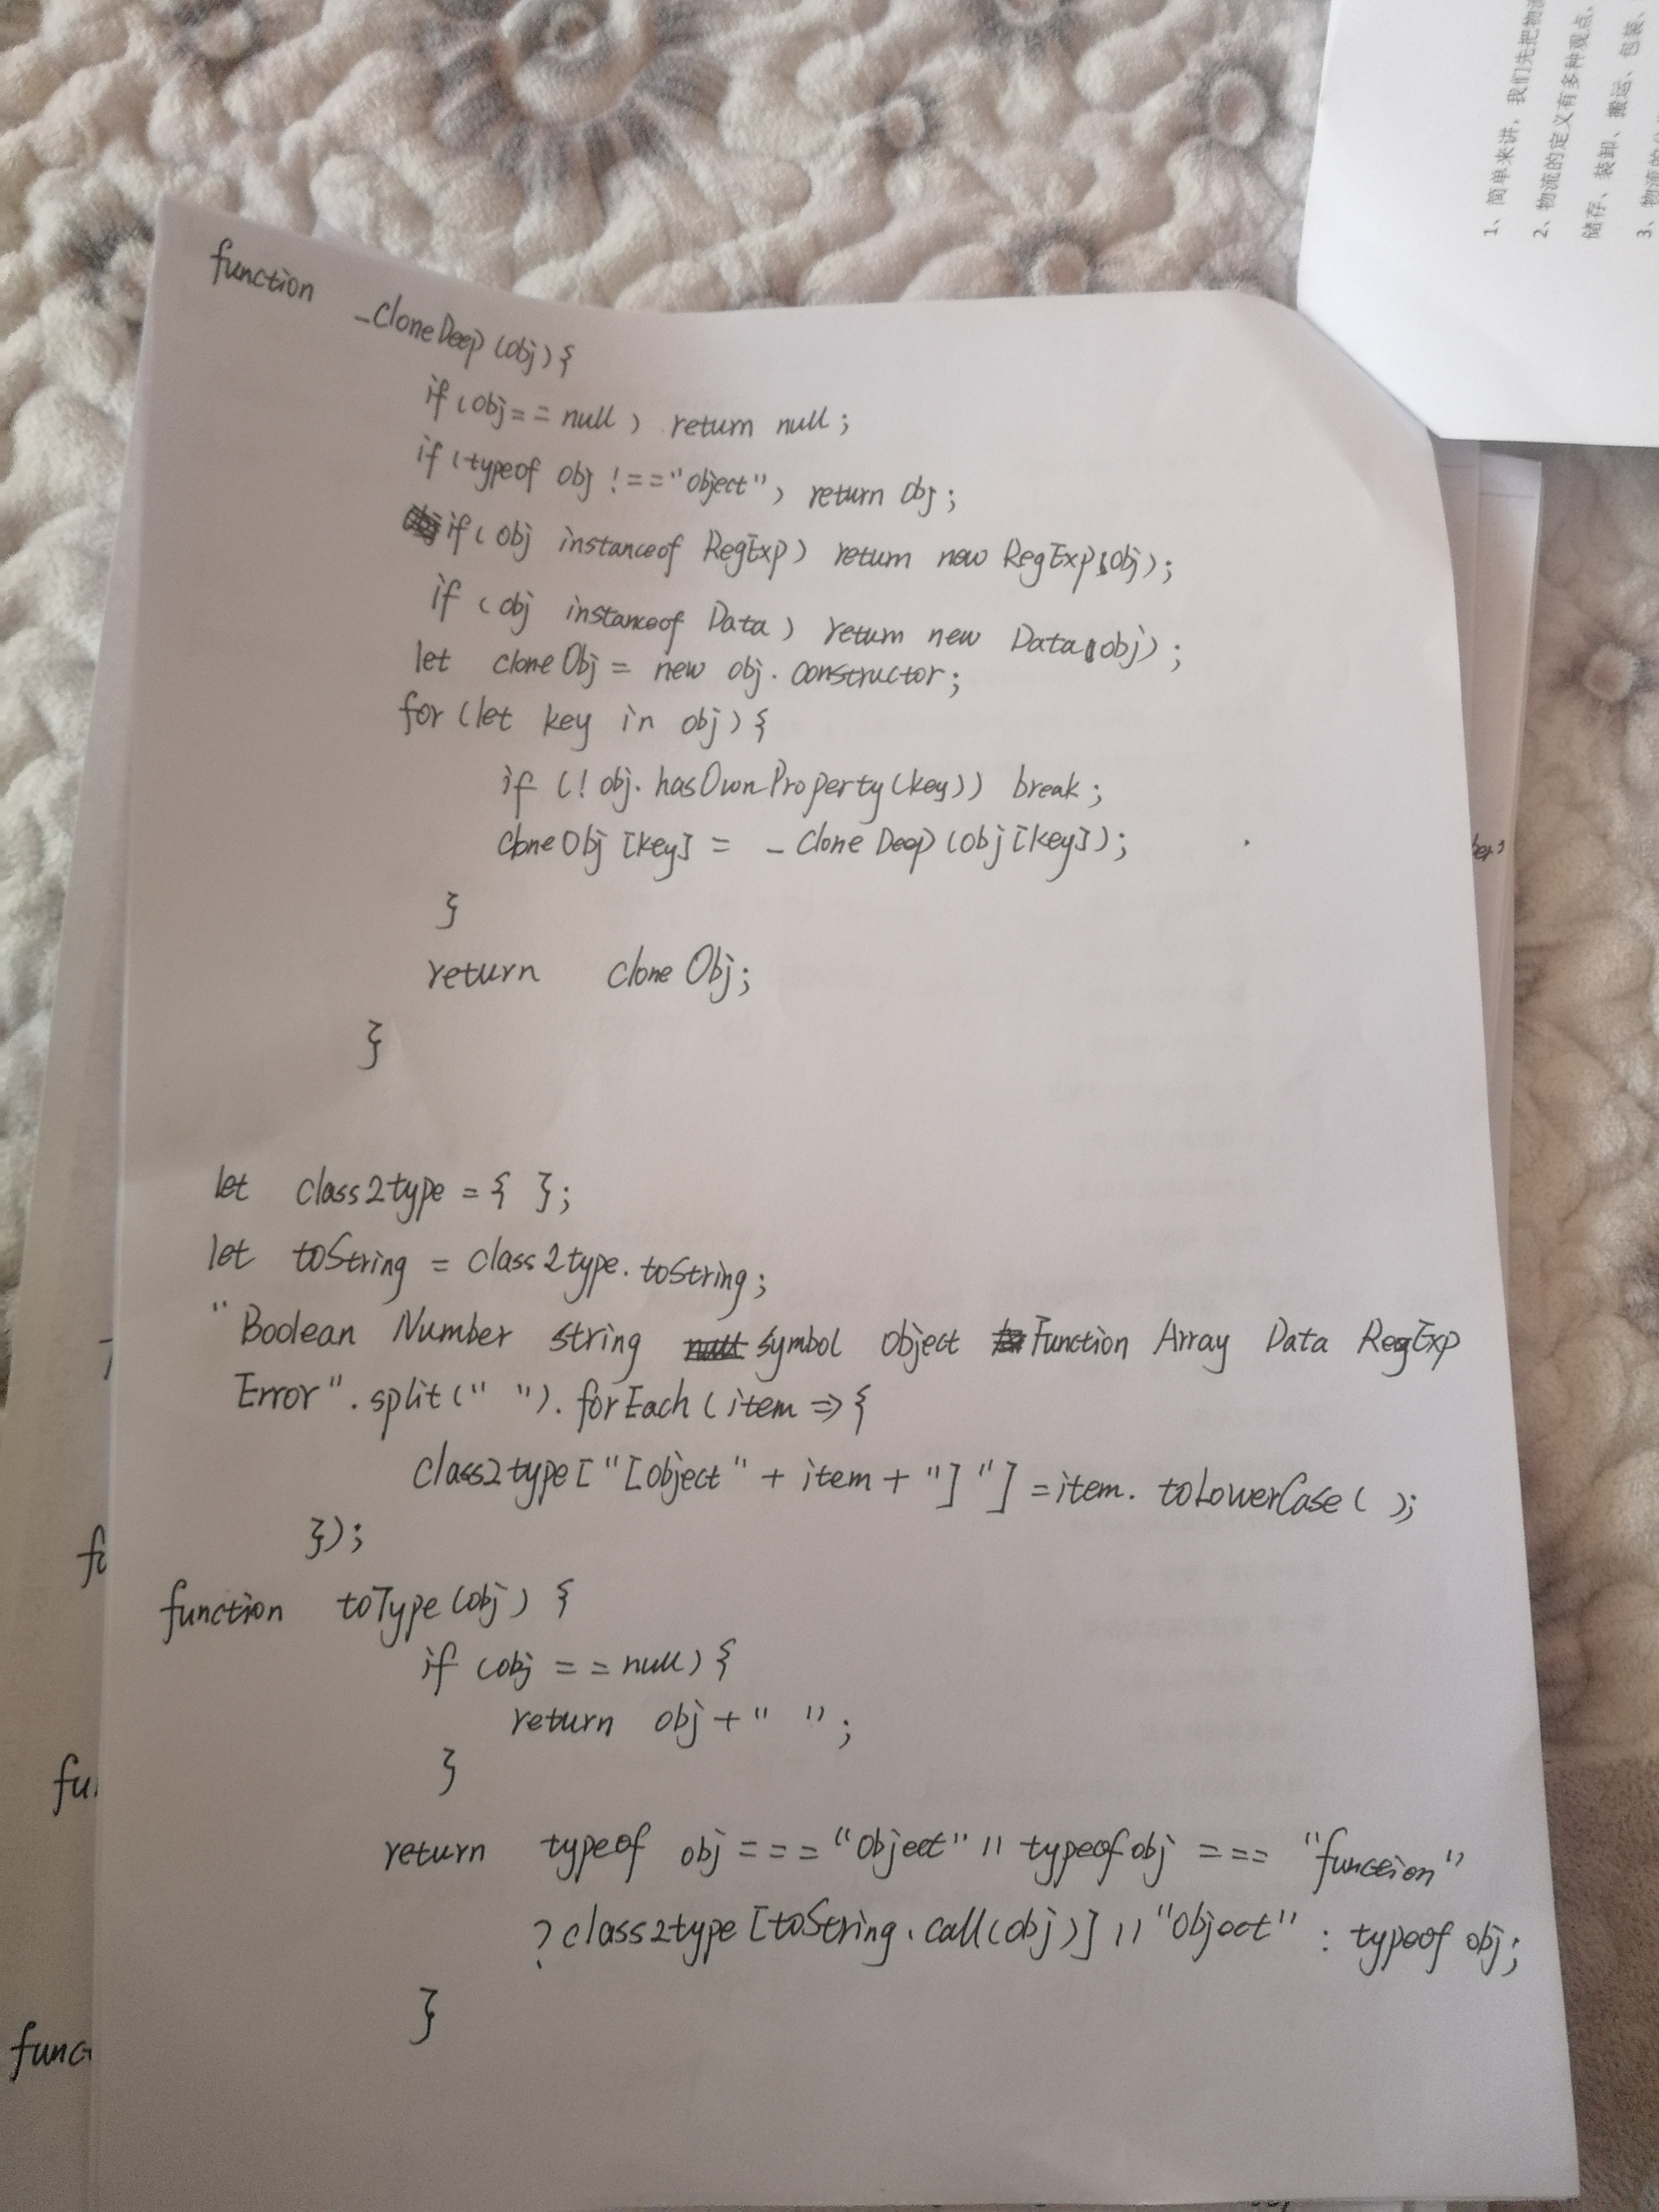 function _cloneDeep(obj){
if(obj==null) return null;
if(typeof obj !=="object") return obj;
if(obj instanceof RegExp) return new RegExp(obj);
if(obj instanceof Data) return new Data(obj);
let cloneObj = new obj.constructor;
for(let key in obj){
if(!obj.hasOwnProperty(key)) break;
cloneObj[key] = _cloneDeep(obj[key]);
}
return cloneObj;
}
let class2type = { };
let toString = class2type.toString;
"Boolean Number string symbol object Function Array Data RegExp
Error".split(" ").forEach(item=>{
class2type["[object" + item + "]"] = item.toLowerCase( );
});
function toType(obj) {
if (obj == null) {
return obj+" ";
}
return typeof obj === "object" || typeof obj === "function"
? class2type[toString.call(obj)] || "object" : typeof obj;
}
1、简单来讲,我们先把物流
2、物流的定义有多种观点,
储存、装卸、搬运、包装、
3、物流的
fu
func